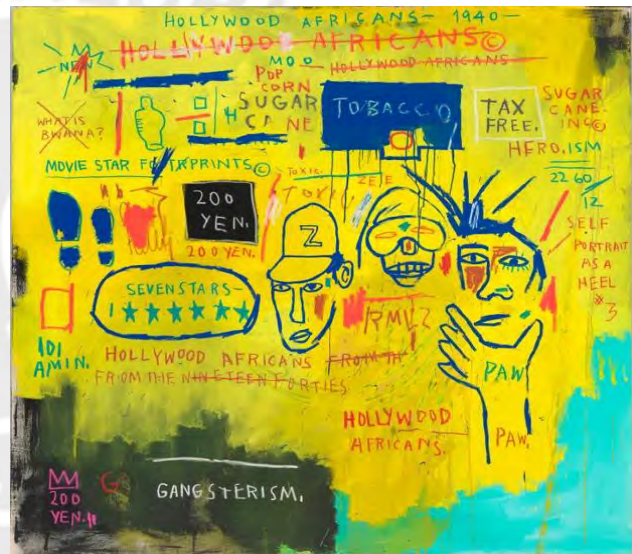 HOLLYWOOD AFRICANS - 1940 -
NEW
HOLLYWOOD AFRICANS©
HOLLYWOOD AFRICANS
POP
CORN
SUGAR
CANE
TOBACCO
TAX
FREE.
SUGAR
CANE.
INC©
WHAT IS
BWANA?
HERO.ISM
MOVIE STAR FOOTRPRINTS©
TOXIC.
2260
12
200
YEN.
200 YEN.
Z
SELF
PORTRAIT
AS A
HEEL
3
SEVEN STARS -
RMLZ
101
AMIN.
HOLLYWOOD AFRICANS FROM TH
FROM THE NINETEEN FORTIES
PAW
HOLLYWOOD
AFRICANS.
PAW.
GANGSTERISM.
200
YEN.